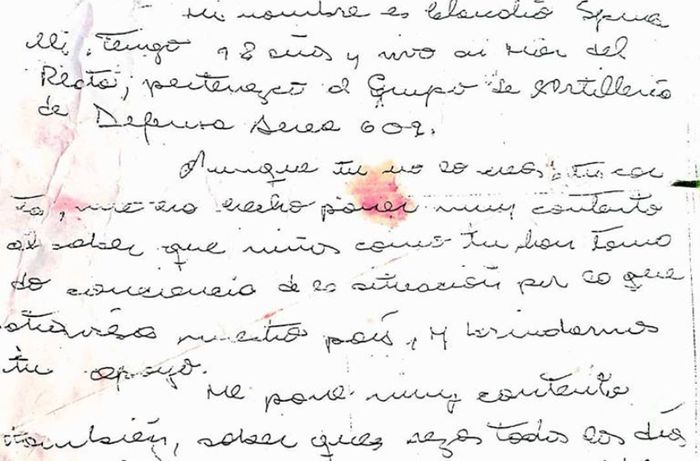 Mi nombre es Claudio Spina
lli, tengo 18 años y vivo en Mar del
Plata, pertenezco al Grupo de Artillería
de Defensa Aerea 602.
Aunque tu no lo creas tu car
ta, nos ha hecho poner muy contento
al saber que niños como tu han toma
do conciencia de la situación por lo que
atraviesa nuestro país, y brindarnos
tu apoyo.
Me pone muy contento
también, saber que rezas todos los días